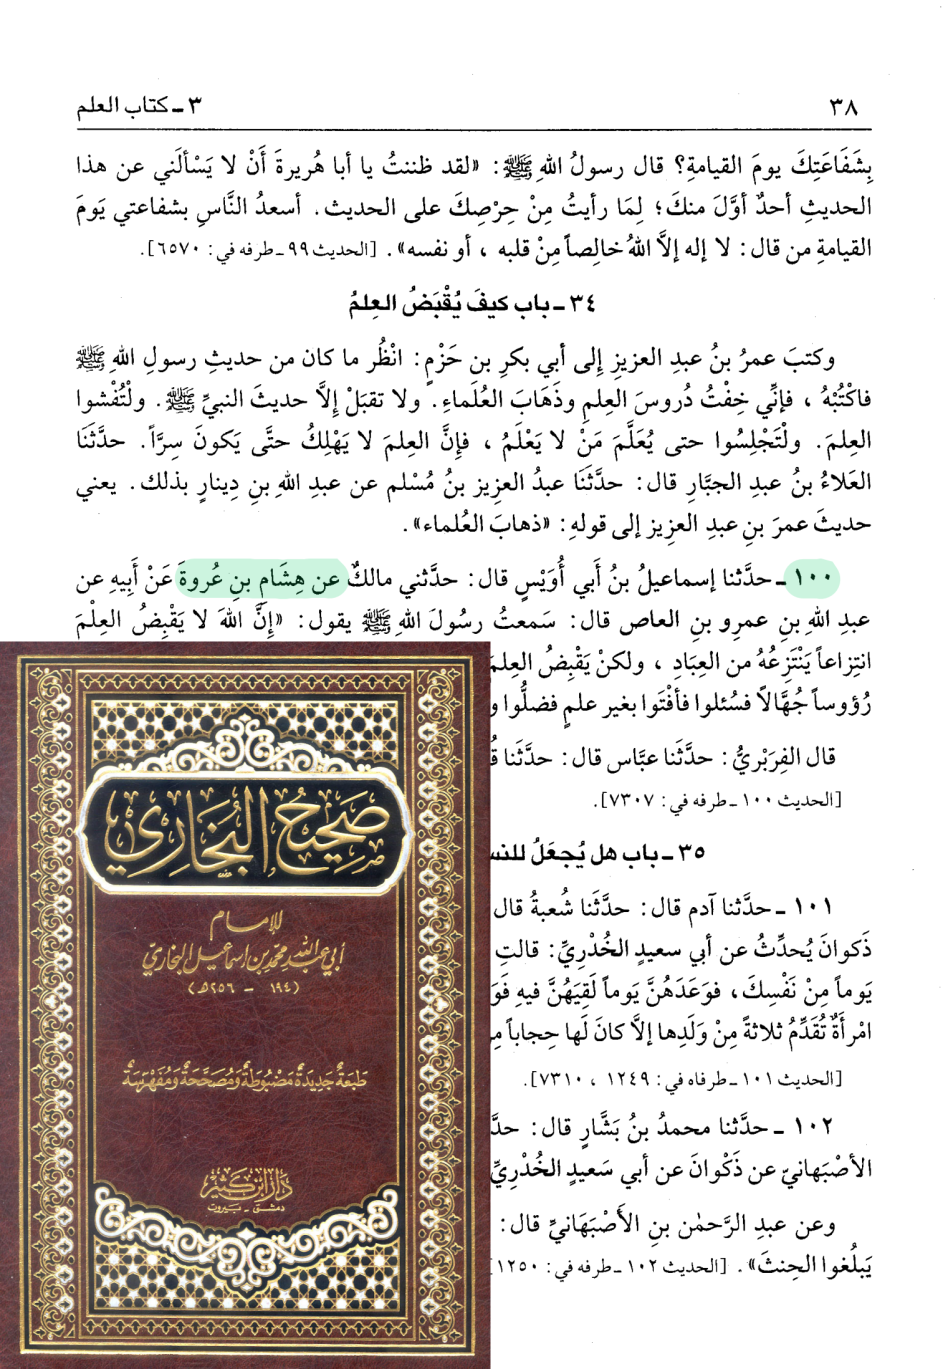 ٣٨
٣ ـ كتاب العلم
بِشَفَاعَتِكَ يومَ القيامةِ؟ قال رسولُ اللهِ ﷺ: «لقد ظننتُ يا أبا هُريرةَ أَنْ لا يَسْألَني عن هذا
الحديثِ أحدٌ أوَّلَ منكَ؛ لِمَا رأيتُ مِنْ حِرْصِكَ على الحديث. أسعدُ النَّاسِ بشفاعتي يَومَ
القيامةِ من قال: لا إله إلاَّ اللهُ خالِصاً مِنْ قلبه ، أو نفسه». [الحديث ٩٩ ـ طرفه في: ٦٥٧٠].
٣٤ ـ باب كيفَ يُقْبَضُ العِلمُ
وكتبَ عمرُ بنُ عبدِ العزيزِ إلى أبي بكرِ بن حَزْمٍ: انْظُر ما كان من حديثِ رسولِ اللهِ ﷺ
فاكْتُبْهُ ، فإنِّي خِفْتُ دُروسَ العِلمِ وذَهَابَ العُلَماءِ. ولا تقبَلْ إلاَّ حديثَ النبيِّ ﷺ. ولْتُفْشوا
العِلمَ. ولْتَجْلِسُوا حتى يُعَلَّمَ مَنْ لا يَعْلَمُ ، فإنَّ العِلمَ لا يَهْلِكُ حتَّى يَكونَ سِرّاً. حدَّثَنَا
العَلاءُ بنُ عبدِ الجبَّارِ قال: حدَّثَنَا عبدُ العزيز بنُ مُسْلم عن عبدِ اللهِ بنِ دِينارٍ بذلك. يعني
حديثَ عمرَ بنِ عبدِ العزيز إلى قولهِ: «ذهابَ العُلماء».
١٠٠ ـ حدَّثنا إسماعيلُ بنُ أَبي أُوَيْسٍ قال: حدَّثني مالكٌ عن هِشَام بنِ عُروةَ عَنْ أَبِيهِ عن
عبدِ اللهِ بنِ عمرِو بنِ العاص قال: سَمعتُ رسُولَ اللهِ ﷺ يقول: «إِنَّ اللهَ لا يَقْبِضُ العِلْمَ
انتِزاعاً يَنْتَزِعُهُ من العِبَادِ ، ولكنْ يَقْبِضُ العِلمَ
رُؤوساً جُهَّالاً فسُئلوا فأفْتَوا بغير علمٍ فضلُّوا و
قال الفِرَبْريُّ: حدَّثَنا عبَّاس قال: حدَّثَنا قُ
[الحديث ١٠٠ ـ طرفه في: ٧٣٠٧].
٣٥ ـ باب هل يُجعَلُ للنس
١٠١ ـ حدَّثنا آدم قال: حدَّثَنا شُعبةُ قال
ذَكوانَ يُحدِّثُ عن أبي سعيدٍ الخُدْرِيِّ: قالتِ
يَوماً مِنْ نَفْسِكَ، فوَعَدَهُنَّ يَوماً لَقِيَهُنَّ فيهِ فَوَ
امْرأَةٌ تُقَدِّمُ ثلاثةً مِنْ وَلَدِها إلاَّ كانَ لَها حِجاباً مِ
[الحديث ١٠١ ـ طرفاه في: ١٢٤٩ ، ٧٣١٠].
١٠٢ ـ حدَّثنا محمدُ بنُ بَشَّارٍ قال: حدَّ
الأصْبَهانيّ عن ذَكْوانَ عن أبي سَعيدٍ الخُدْرِيِّ
وعن عبدِ الرَّحمٰن بنِ الأَصْبَهَانيِّ قال:
يَبلُغوا الحِنثَ». [الحديث ١٠٢ ـ طرفه في: ١٢٥٠]
صَحِيحُ البُخَارِي
للإمَام
أبي عبد الله محمّد بن اسماعيل البخاريّ
(١٩٤ - ٢٥٦هـ)
طَبعَةٌ جَدِيدَةٌ مَضبُوطَةٌ وَمُصَحَّحَةٌ وَمُفَهْرَسَةٌ
دَارُ ابن كَثير
دمشق - بيروت